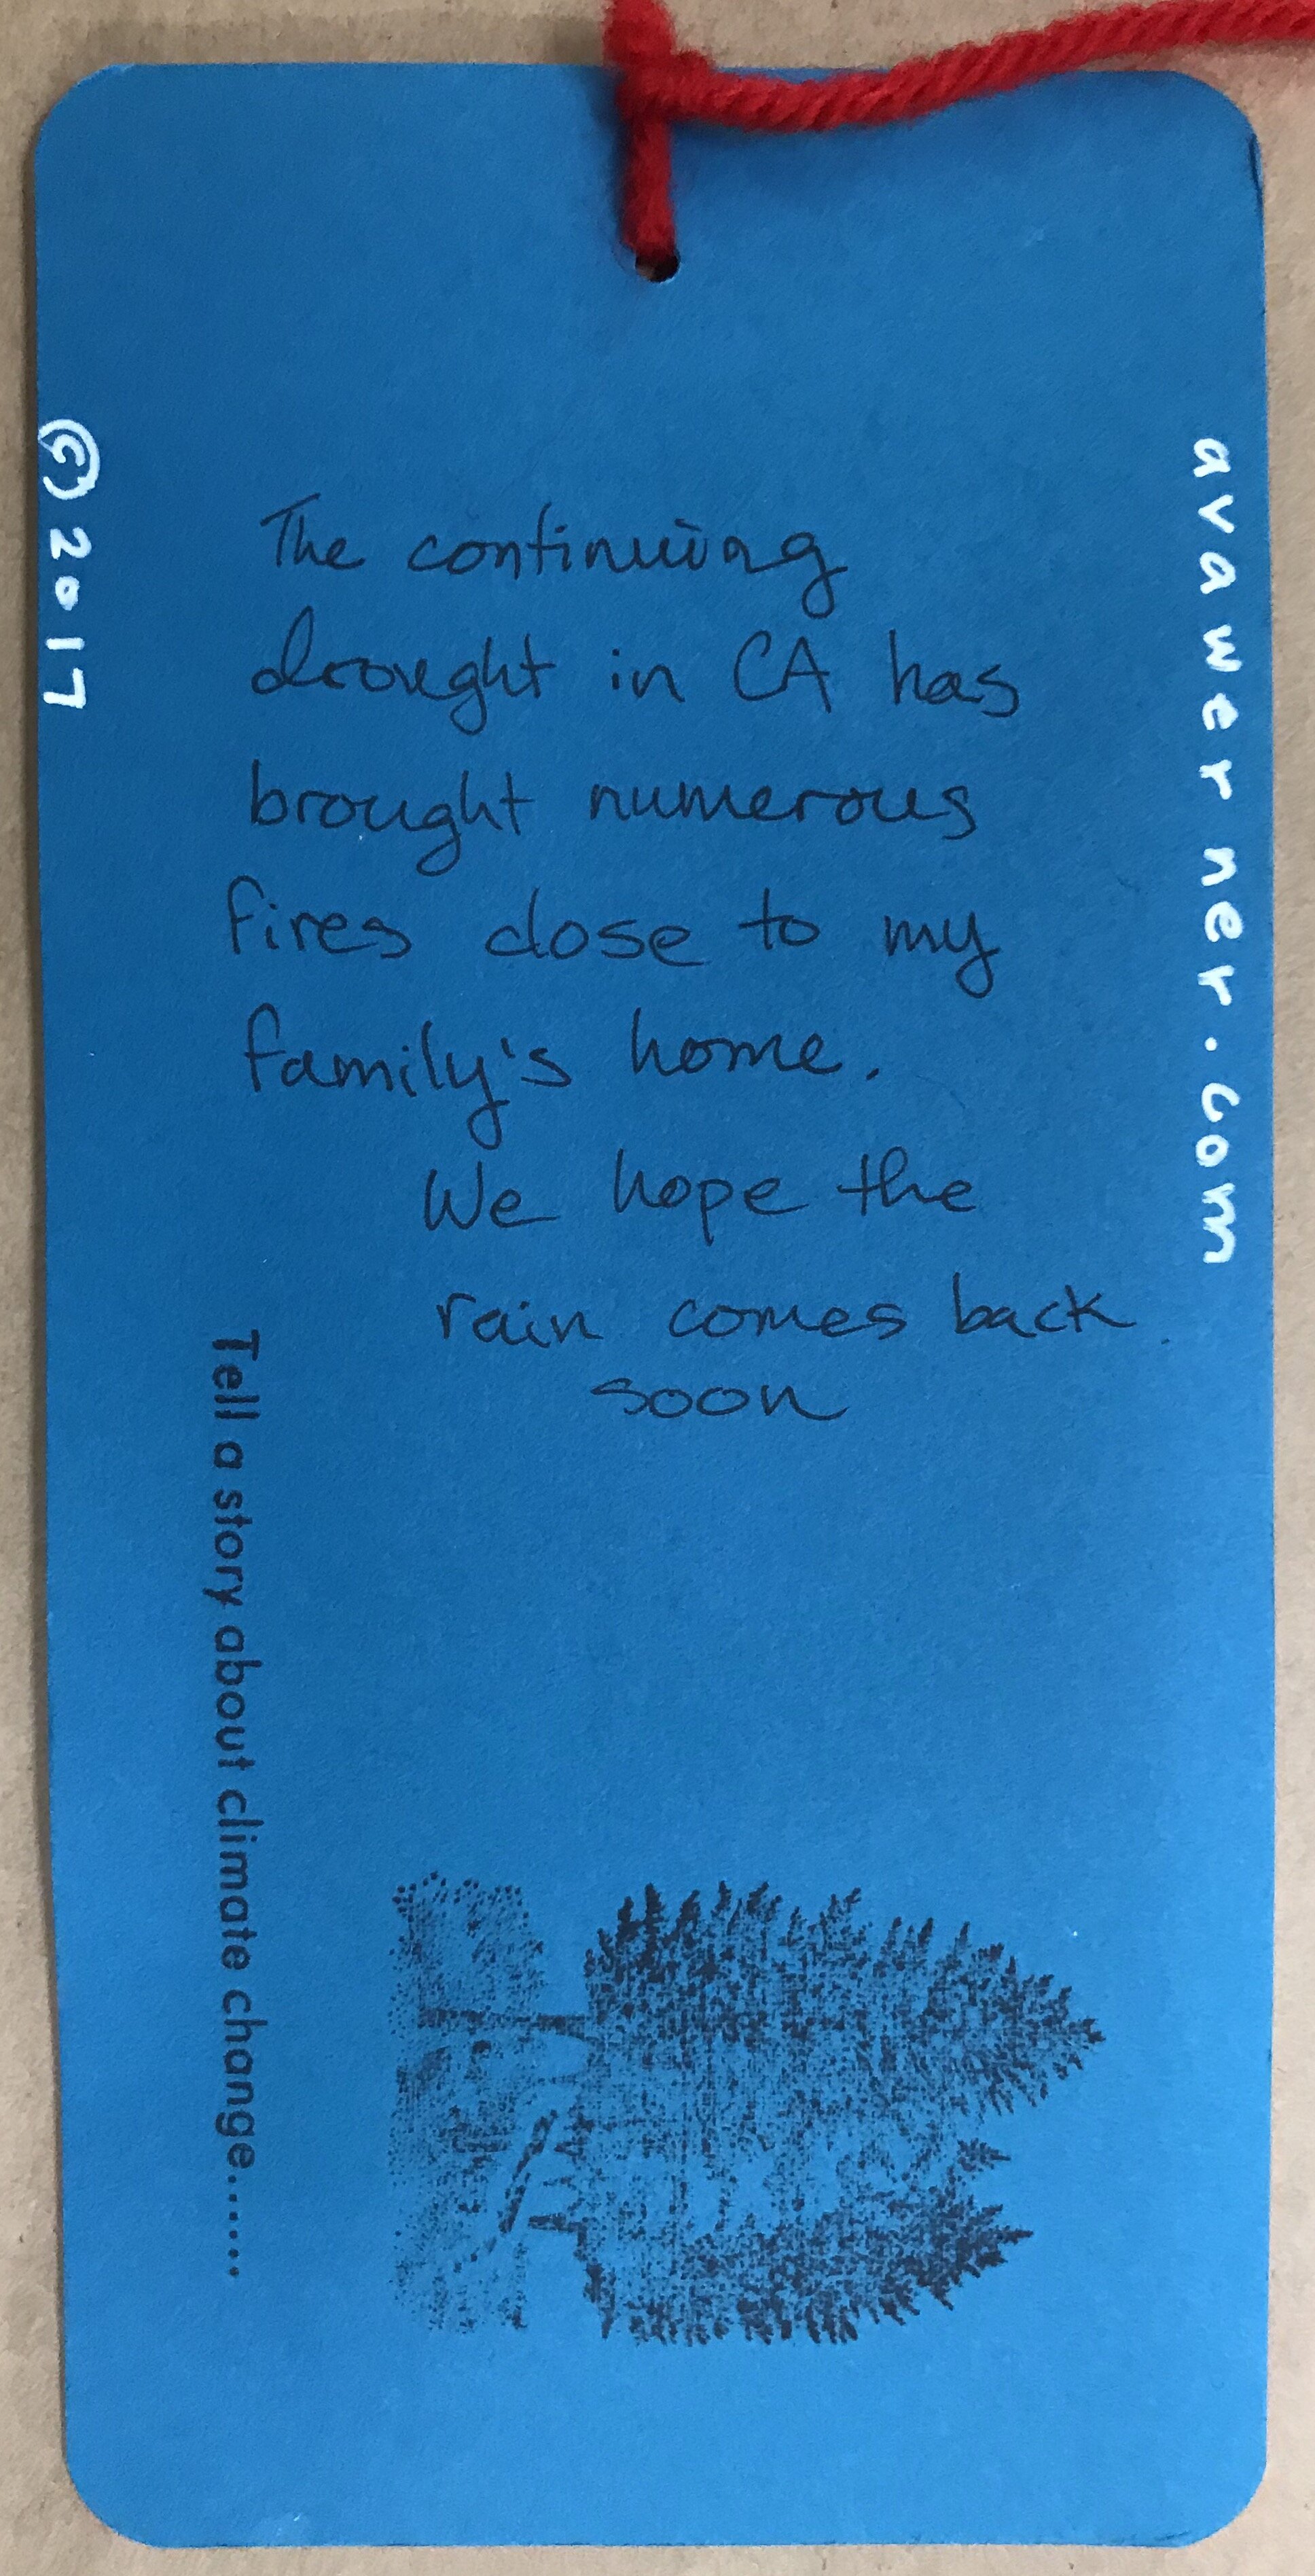 The continuing
drought in CA has
brought numerous
fires close to my
family's home.
We hope the
rain comes back
soon
Tell a story about climate change......
©2017
avawerner.com